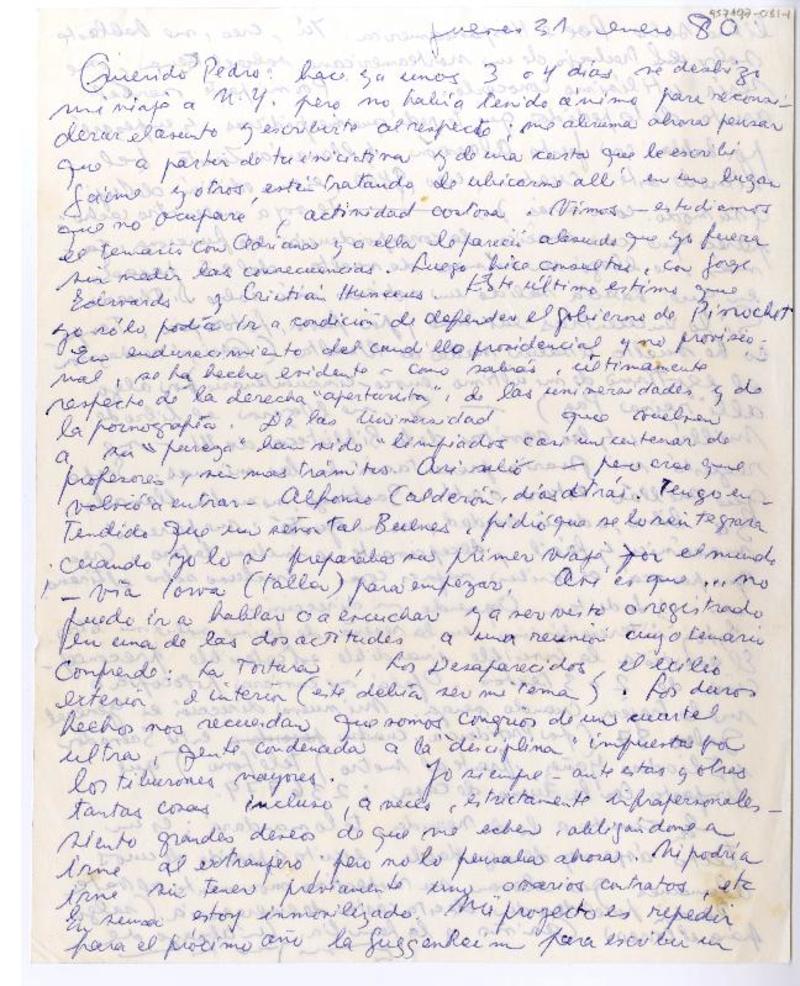 957497-031-1
jueves 31 enero 80
Querido Pedro: hace ya unos 3 o 4 días se deshizo
mi viaje a N.Y. pero no había tenido ánimo para reconsi-
derar el asunto y escribirte al respecto; me abruma ahora pensar
que a partir de tu iniciativa y de una carta que le escribí
Jaime y otros, estén tratando de ubicarme allí en un lugar
que no ocuparé y actividad costosa. Vimos - estudiamos
el temario con Adriana y a ella le pareció absurdo que yo fuera
sin medir las consecuencias. Luego hice consultas, con Jorge
Edwards y Cristián Huneeus. Este último estima que
yo sólo podía ir a condición de defender el gobierno de Pinochet
Un endurecimiento del caudillo providencial y no proviso-
nal, se ha hecho evidente - como sabrás, últimamente
respecto de la derecha "aperturista", de las universidades y de
la pornografía. De las Universidad que vuelven
a su "pureza" han sido "limpiados casi un centenar de
profesores, sin mas trámites. Así salió - pero creo que
volvió a entrar - Alfonso Calderón, días atrás. Tengo en-
tendido que un señor tal Bulnes, pidió que se lo reintegrara
cuando yo lo sé preparaba su primer viaje por el mundo
- vía Iowa (taller) para empezar. Así es que ... no
puedo ir a hablar o a escuchar y a ser visto o registrado
en una de las dos actitudes a una reunión cuyo temario
Comprende: La Tortura, Los Desaparecidos, el exilio
exterior e interior (este debía ser mi tema). Los duros
hechos nos recuerdan que somos congrios de un cuartel
ultra, gente condenada a la "disciplina" impuesta por
los tiburones mayores. Yo siempre - ante estas y otras
tantas cosas incluso, a veces, estrictamente infrapersonales -
siento grandes deseos de que me echen obligándome a
irme al extranjero pero no lo pensaba ahora. Ni podría
irme sin tener previamente uno o varios contratos, etc
En suma estoy inmovilizado. Mi proyecto es repedir
para el próximo año la Guggenheim para escribir un